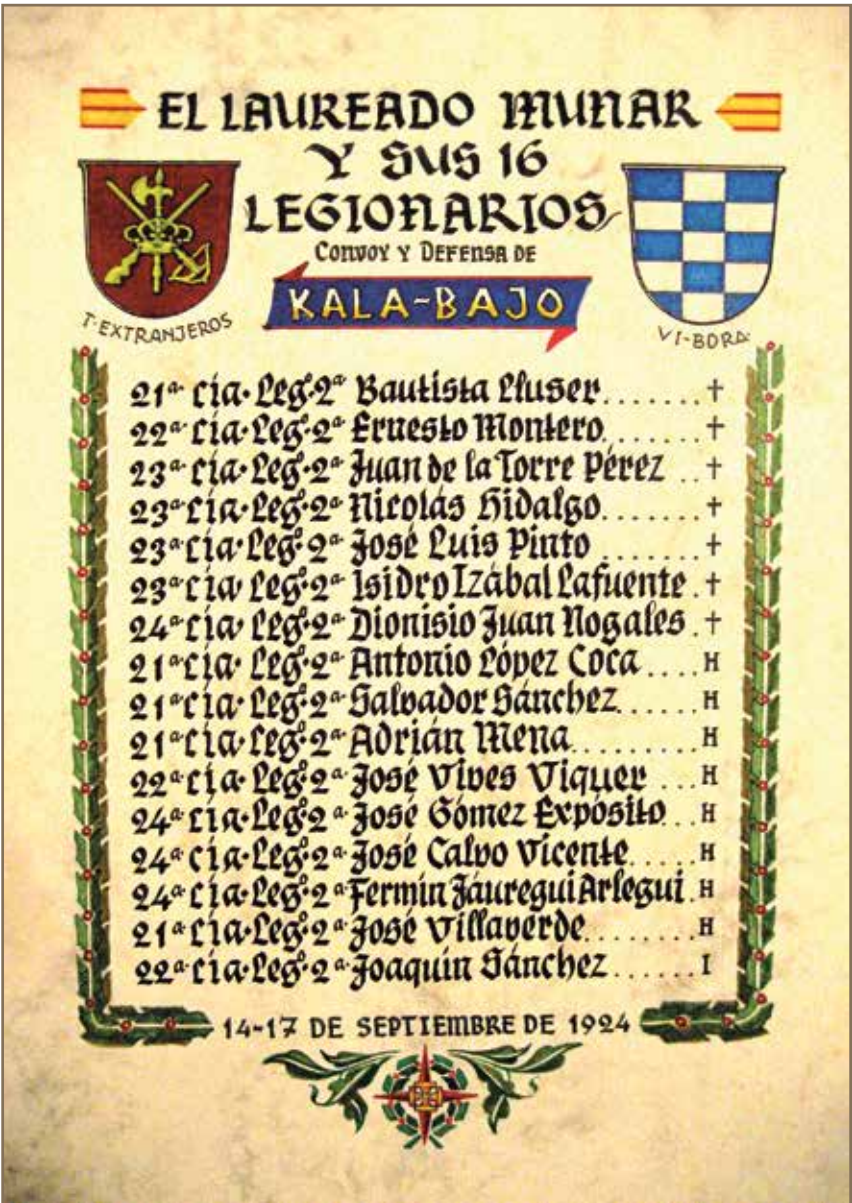 EL LAUREADO MUNAR
Y SUS 16
LEGIONARIOS
CONVOY Y DEFENSA DE
KALA-BAJO
T. EXTRANJEROS
VI-BORA
21ª Cía. Legº 2ª Bautista Lluser.......†
22ª Cía. Legº 2ª Ernesto Montero.......†
23ª Cía. Legº 2ª Juan de la Torre Pérez ..†
23ª Cía. Legº 2ª Nicolás Hidalgo.......†
23ª Cía. Legº 2ª José Luis Pinto .......†
23ª Cía. Legº 2ª Isidro Izábal Lafuente.†
24ª Cía. Legº 2ª Dionisio Juan Nogales.†
21ª Cía. Legº 2ª Antonio López Coca....H
21ª Cía. Legº 2ª Salvador Sánchez......H
21ª Cía. Legº 2ª Adrián Mena.........H
22ª Cía. Legº 2ª José Vives Viquer ...H
24ª Cía. Legº 2ª José Gómez Expósito...H
24ª Cía. Legº 2ª José Calvo Vicente.....H
24ª Cía. Legº 2ª Fermín Jáuregui Arlegui.H
21ª Cía. Legº 2ª José Villaverde........H
22ª Cía. Legº 2ª Joaquín Sánchez......I
14-17 DE SEPTIEMBRE DE 1924